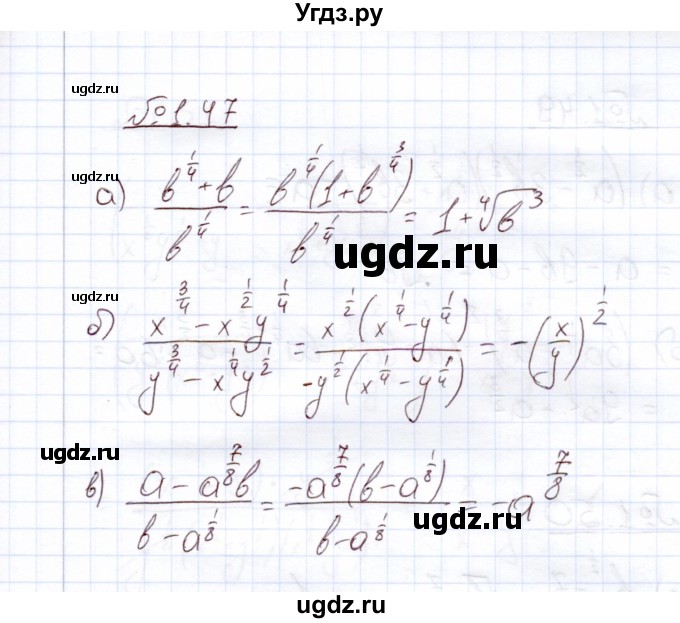 Угдз.ру
ugdz.ru
№1.47
ugdz.ru
а) (b^(1/4) + b) / b^(1/4) = b^(1/4)(1 + b^(3/4)) / b^(1/4) = 1 + ⁴√b³
ugdz.ru
ugdz.ru
б) (x^(3/4) − x^(1/2)y^(1/4)) / (y^(3/4) − x^(1/4)y^(1/2)) = x^(1/2)(x^(1/4) − y^(1/4)) / −y^(1/2)(x^(1/4) − y^(1/4)) = −(x/y)^(1/2)
ugdz.ru
ugdz.ru
в) (a − a^(7/8)b) / (b − a^(1/8)) = −a^(7/8)(b − a^(1/8)) / (b − a^(1/8)) = −a^(7/8)
ugdz.ru
ugdz.ru
ugdz.ru